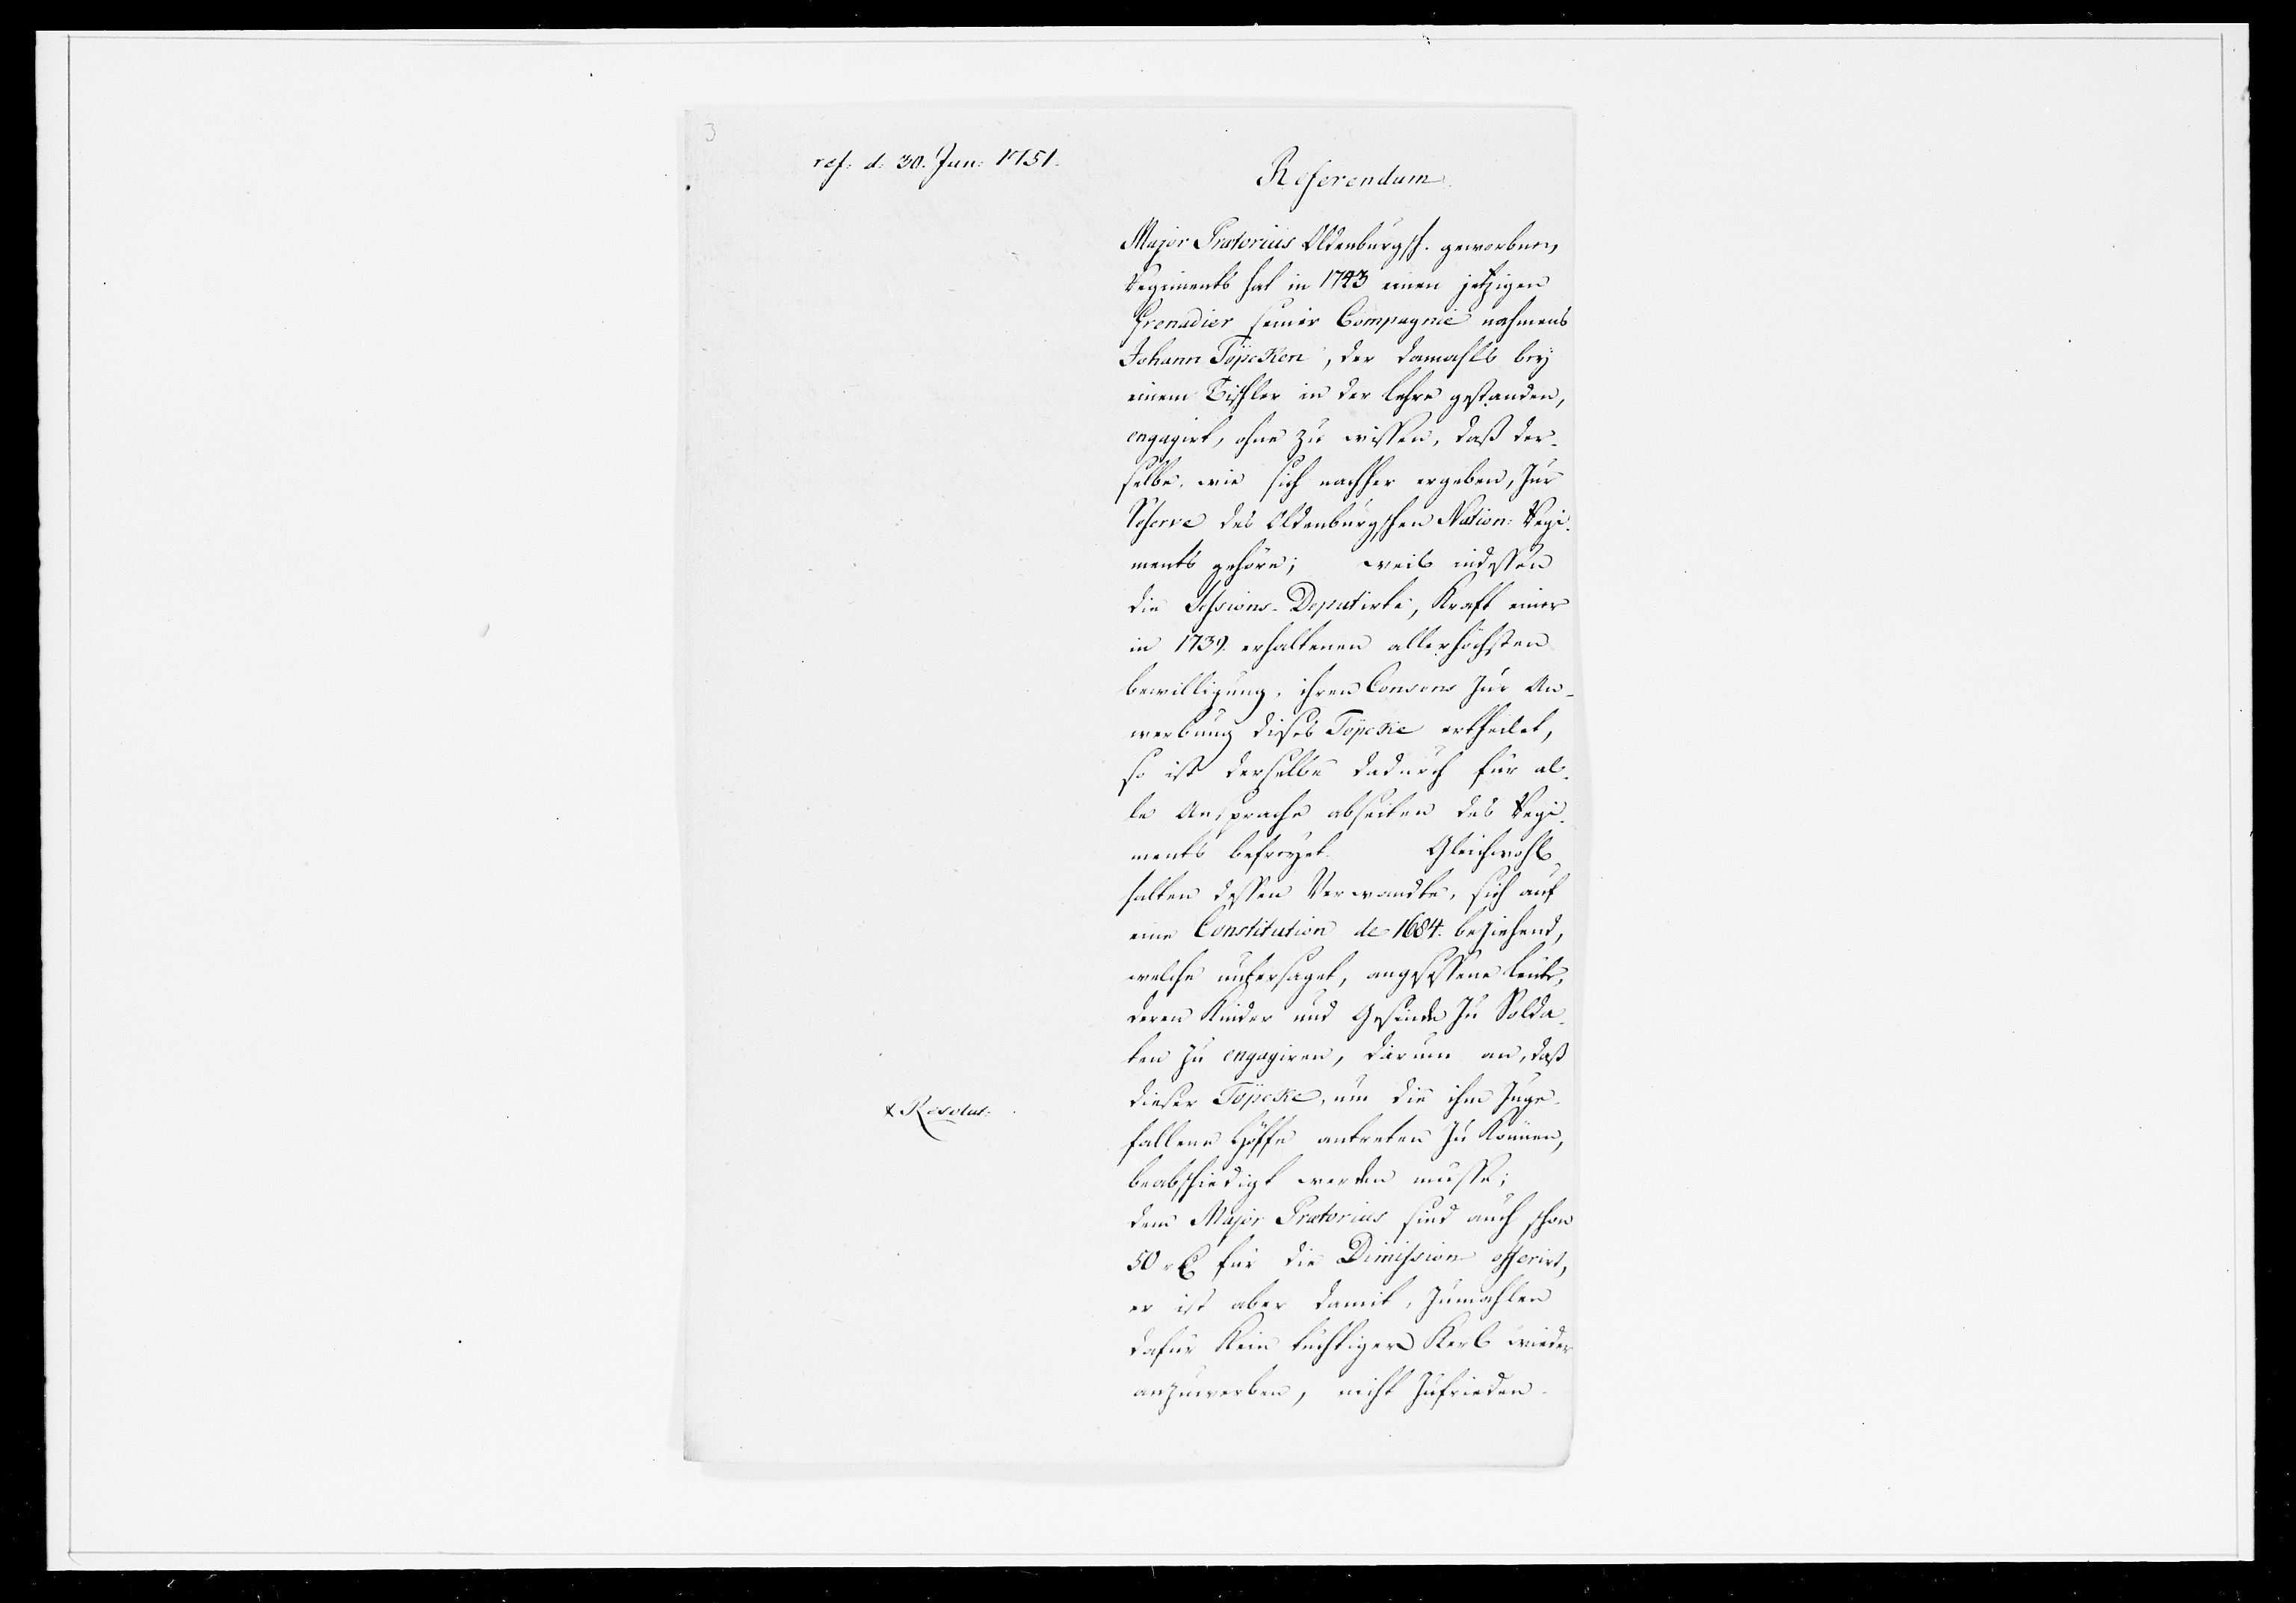 3
ref: d: 30. Jun: 1751.
Referendum.
Major Prætorius Oldenburgsch. geworbnen
Regiments hat in 1743 einen jetzigen
Grenadier seiner Compagnie nahmens
Johann Töpcken, der damahls bey
einem Tischler in der Lehre gestanden,
engagirt, ohne zu wissen, daß der-
selbe, wie sich nachher ergeben, zur
Reserve des Oldenburgschen Nation: Regi-
ments gehöre; weil indessen
die Sessions-Deputirte, Kraft einer
in 1739. erhaltenen allerhöchsten
bewilligung, ihren Consens zur An-
werbung dises Töpcke ertheilet,
so ist derselbe dadurch für al-
le Ansprache abseiten des Regi-
ments befreyet. Gleichwohl
halten dessen Verwandte, sich auf
eine Constitution de 1684. beziehend,
welche untersaget, angesessene Leute,
deren Kinder und Gesinde zu Solda-
ten zu engagiren, darum an, daß
dieser Töpcke, um die ihm zuge-
fallene Höffe antreten zu können,
beabschiedigt werden müsse;
dem Major Prætorius sind auch schon
50 rC für die Dimission offerirt,
er ist aber damit, zumahlen
dafür kein tüchtiger Kerl wieder
anzuwerben, nicht zufrieden.
x Resolut: